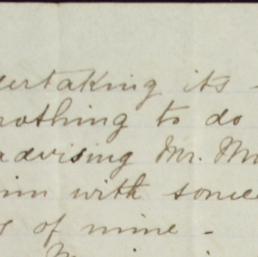 dertaking its
nothing to do
advising Mr. Mo
him with some
of mine -